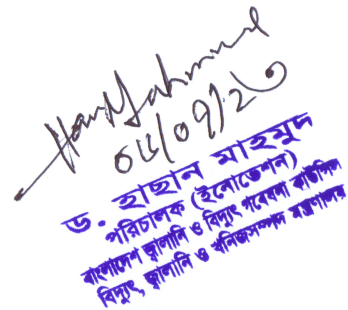 ড. হাছান মাহমুদ
পরিচালক (ইনোভেশন)
বাংলাদেশ জ্বালানি ও বিদ্যুৎ গবেষণা কাউন্সিল
বিদ্যুৎ, জ্বালানি ও খনিজসম্পদ মন্ত্রণালয়